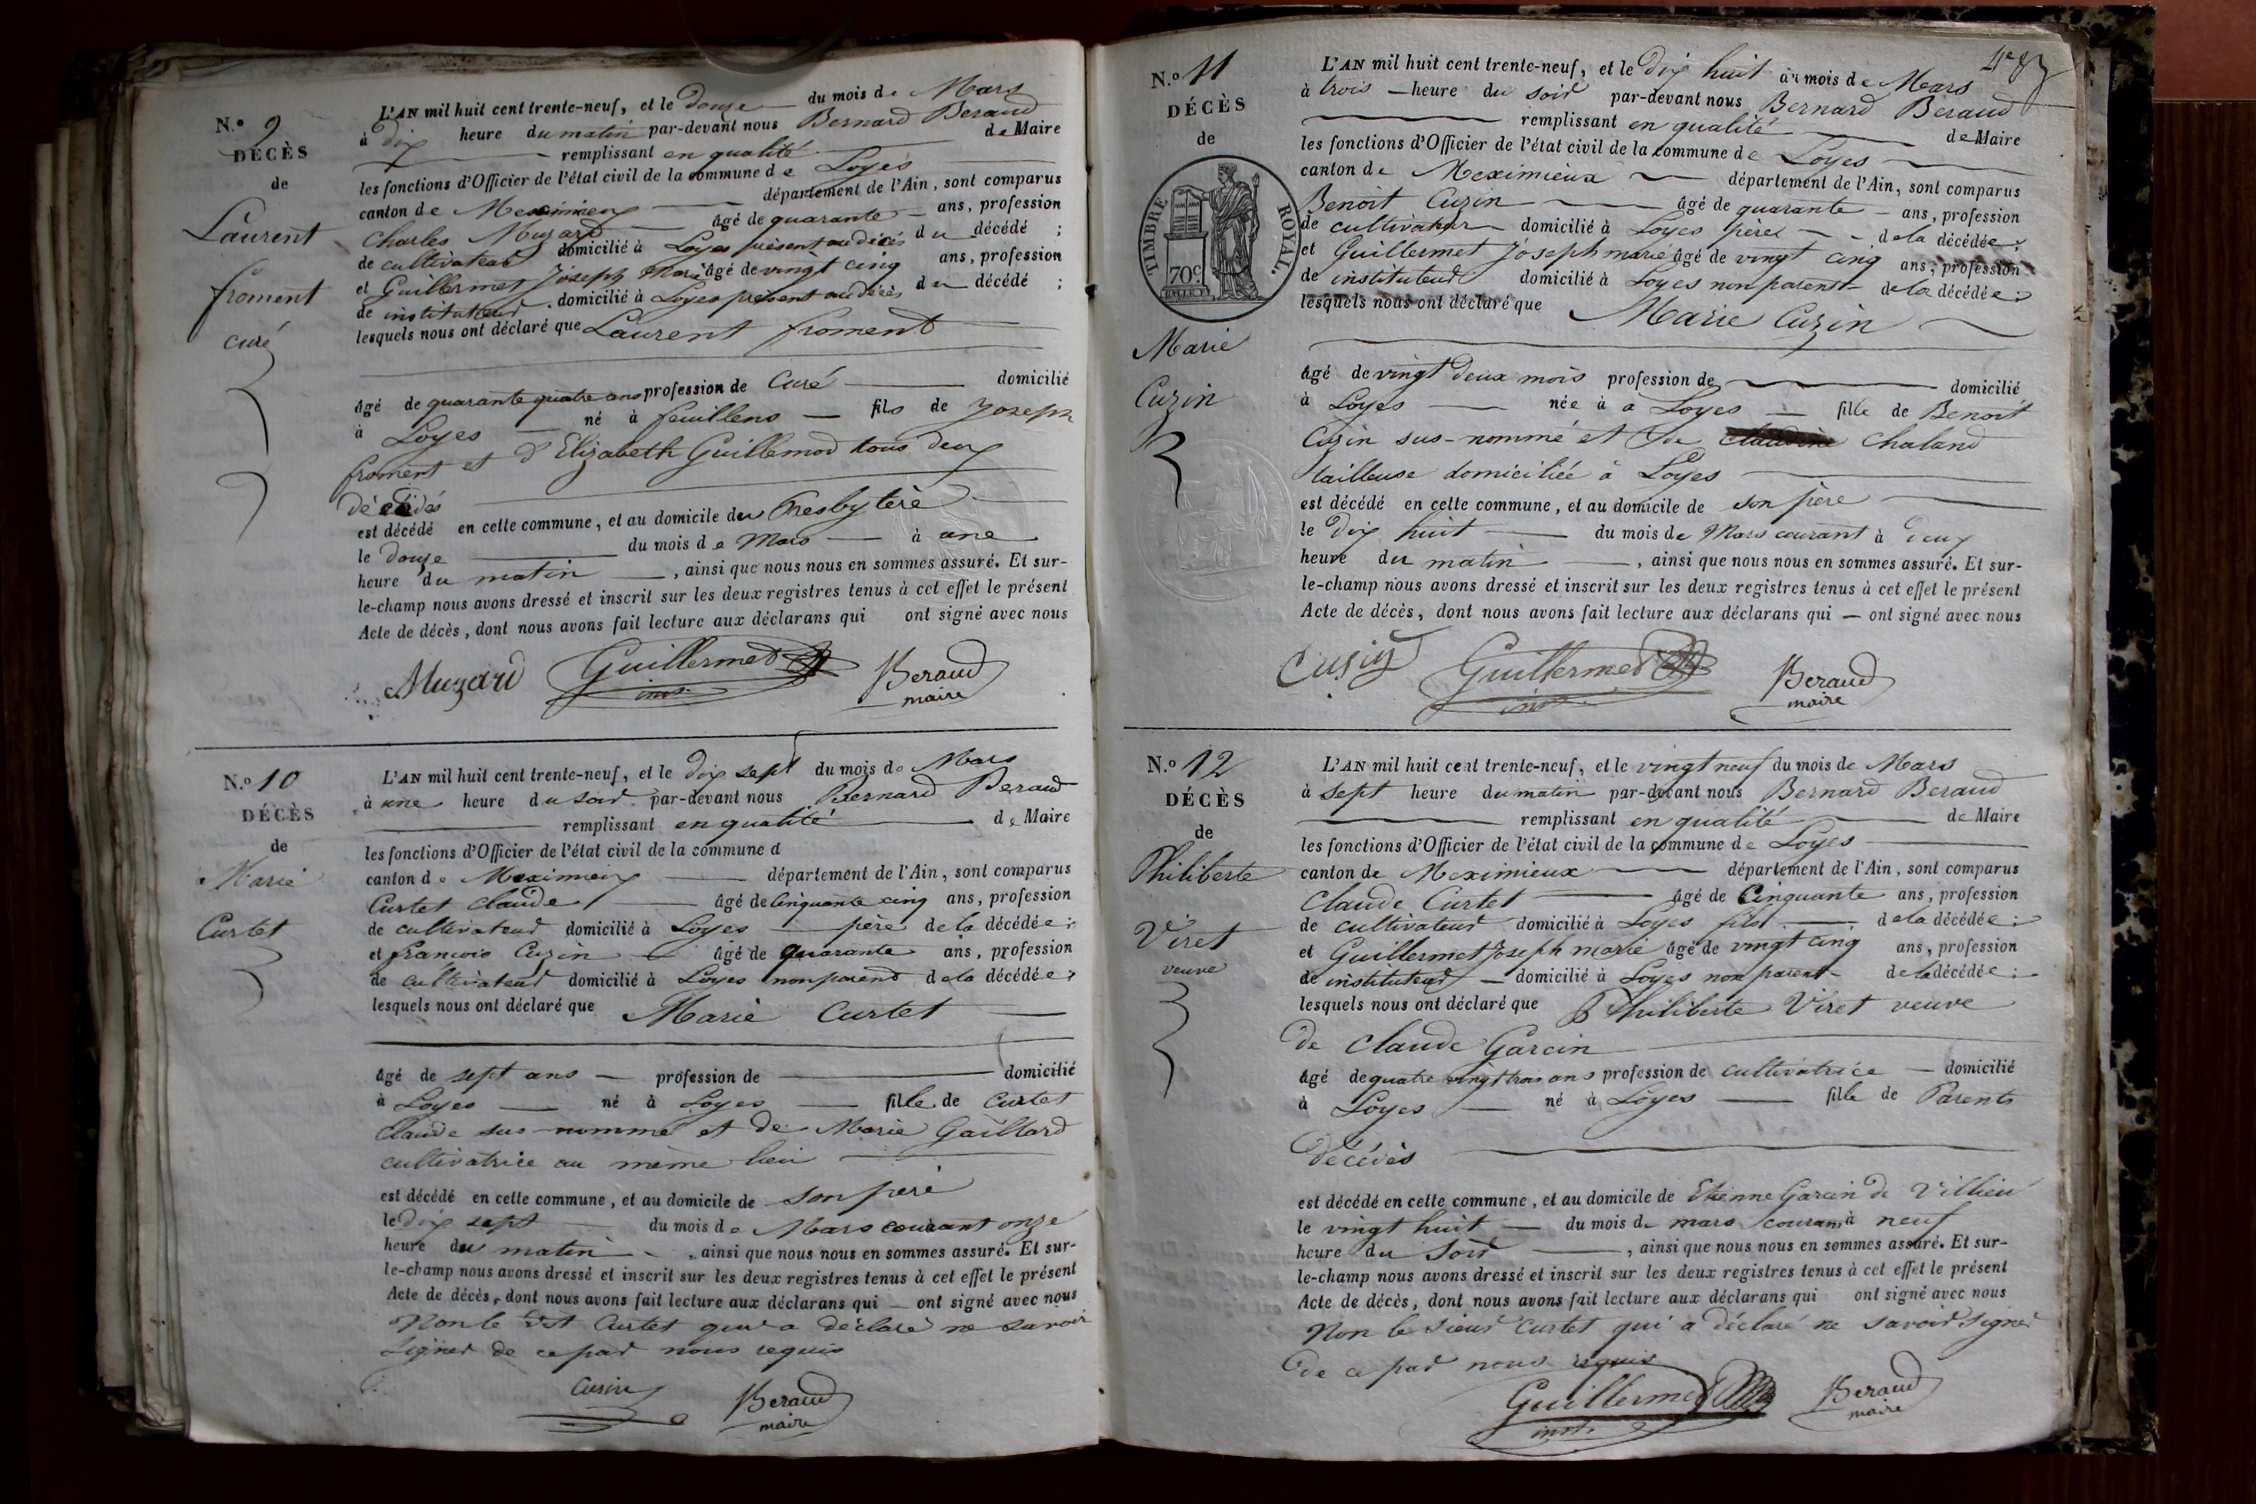 N.º 9
DÉCÈS
de
Laurent
froment
curé
L'AN mil huit cent trente-neuf, et le douze du mois de Mars
à dix heure du matin par-devant nous Bernard Beraud
remplissant en qualité de Maire
les fonctions d'Officier de l'état civil de la commune de Loyes
canton de Meximieux département de l'Ain, sont comparus
Charles Muzard âgé de quarante ans, profession
de cultivateur domicilié à Loyes présent au décès du décédé ;
et Guillermet Joseph Marie âgé de vingt cinq ans, profession
de instituteur domicilié à Loyes présent au décès du décédé ;
lesquels nous ont déclaré que Laurent froment
âgé de quarante quatre ans profession de Curé domicilié
à Loyes né à feuillens fils de Joseph
froment et d'Elizabeth Guillemod tous deux
décédés
est décédé en cette commune, et au domicile du Presbytère
le douze du mois de Mars à une
heure du matin, ainsi que nous nous en sommes assuré. Et sur-
le-champ nous avons dressé et inscrit sur les deux registres tenus à cet effet le présent
Acte de décès, dont nous avons fait lecture aux déclarans qui ont signé avec nous
Muzard Guillermet inst. Beraud
maire
N.º 10
DÉCÈS
de
Marie
Curtet
L'AN mil huit cent trente-neuf, et le dix sept du mois de Mars
à une heure du soir par-devant nous Bernard Beraud
remplissant en qualité de Maire
les fonctions d'Officier de l'état civil de la commune d
canton de Meximieux département de l'Ain, sont comparus
Curtet Claude âgé de Cinquante cinq ans, profession
de cultivateur domicilié à Loyes père de la décédée ;
et françois Cuzin âgé de quarante ans, profession
de cultivateur domicilié à Loyes non parend de la décédée ;
lesquels nous ont déclaré que Marie Curtet
âgé de sept ans profession de domicilié
à Loyes né à Loyes fille de Curtet
Claude sus-nommé et de Marie Gaillard
cultivatrice au même lieu
est décédé en cette commune, et au domicile de son père
le dix sept du mois de Mars courant onze
heure du matin, ainsi que nous nous en sommes assuré. Et sur-
le-champ nous avons dressé et inscrit sur les deux registres tenus à cet effet le présent
Acte de décès, dont nous avons fait lecture aux déclarans qui ont signé avec nous
Non le dit Curtet qui a déclaré ne savoir
signer de ce par nous requis
Cusin Beraud
maire
N.º 11
DÉCÈS
de
TIMBRE ROYAL.
70c.
Marie
Cuzin
L'AN mil huit cent trente-neuf, et le dix huit du mois de Mars
à trois heure du soir par-devant nous Bernard Beraud
remplissant en qualité de Maire
les fonctions d'Officier de l'état civil de la commune de Loyes
canton de Meximieux département de l'Ain, sont comparus
Benoit Cuzin âgé de quarante ans, profession
de cultivateur domicilié à Loyes père de la décédée ;
et Guillermet Joseph marie âgé de vingt cinq ans, profession
de instituteur domicilié à Loyes non parent de la décédée ;
lesquels nous ont déclaré que Marie Cuzin
âgé de vingt deux mois profession de domicilié
à Loyes née à a Loyes fille de Benoit
Cuzin sus-nommé et De Claudine Chaland
tailleuse domiciliée à Loyes
est décédé en cette commune, et au domicile de son père
le dix huit du mois de Mars courant à deux
heure du matin, ainsi que nous nous en sommes assuré. Et sur-
le-champ nous avons dressé et inscrit sur les deux registres tenus à cet effet le présent
Acte de décès, dont nous avons fait lecture aux déclarans qui — ont signé avec nous
Cusin Guillermet inst. Beraud
maire
N.º 12
DÉCÈS
de
Philiberte
Viret
veuve
L'AN mil huit cent trente-neuf, et le vingt neuf du mois de Mars
à sept heure du matin par-devant nous Bernard Beraud
remplissant en qualité de Maire
les fonctions d'Officier de l'état civil de la commune de Loyes
canton de Meximieux département de l'Ain, sont comparus
Claude Curtet âgé de Cinquante ans, profession
de cultivateur domicilié à Loyes fils de la décédée ;
et Guillermet Joseph marie âgé de vingt cinq ans, profession
de instituteur domicilié à Loyes non parent de la décédée ;
lesquels nous ont déclaré que Philiberte Viret veuve
de Claude Garcin
âgé de quatre vingt trois ans profession de cultivatrice domicilié
à Loyes né à Loyes fille de Parents
décédés
est décédé en cette commune, et au domicile de Etienne Garcin de Villieu
le vingt huit du mois de mars courant à neuf
heure du soir, ainsi que nous nous en sommes assuré. Et sur-
le-champ nous avons dressé et inscrit sur les deux registres tenus à cet effet le présent
Acte de décès, dont nous avons fait lecture aux déclarans qui ont signé avec nous
Non le sieur Curtet qui a déclaré ne savoir signer
De ce par nous requis
Guillermet inst. Beraud
maire